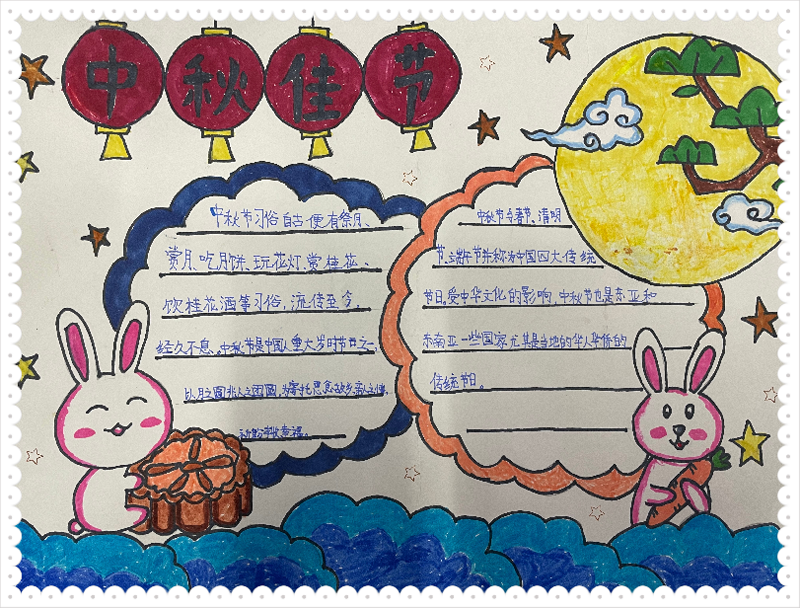 中秋佳节
中秋节习俗自古便有祭月、
赏月、吃月饼、玩花灯、赏桂花、
饮桂花酒等习俗，流传至今，
经久不息。中秋节是中国人重大岁时节日之一，
以月之圆
中秋节与春节、清明
节、端午节并称为中国四大传统
节日。受中华文化的影响，中秋节也是东亚和
东南亚一些国家尤其是当地的华人华侨的
传统节日。